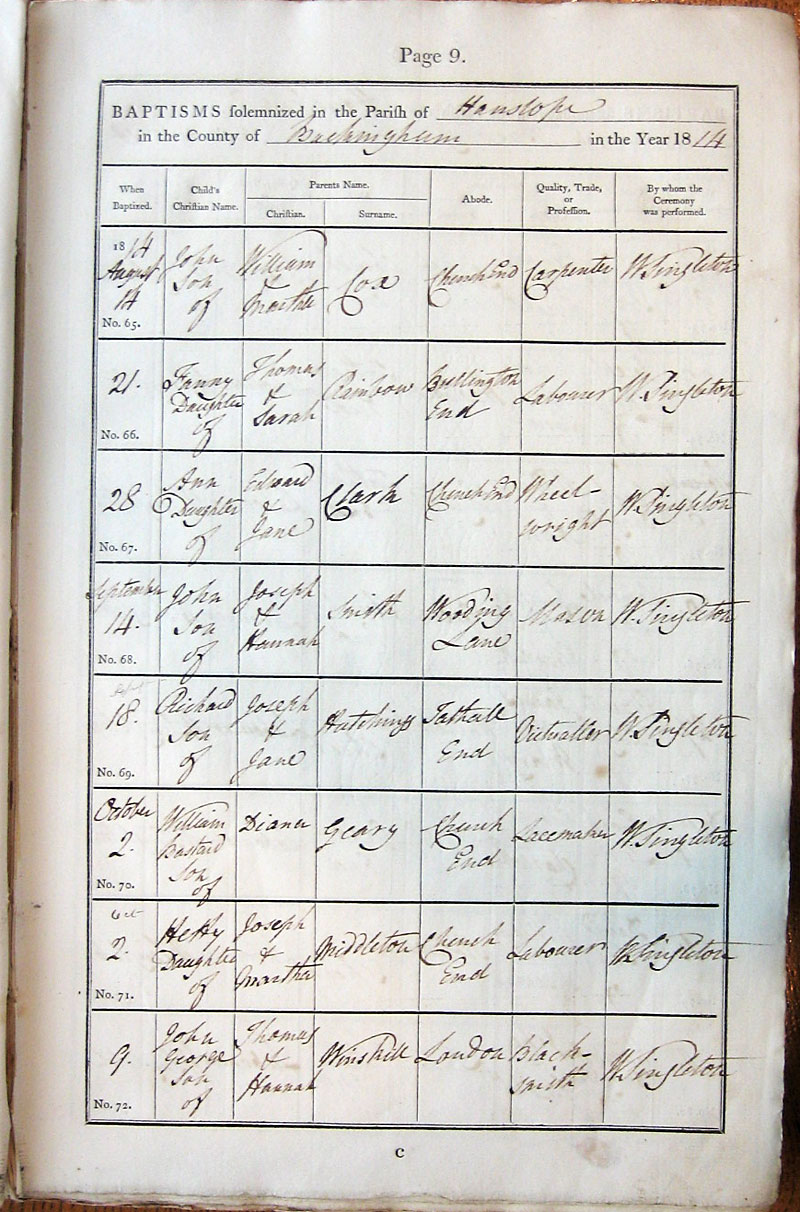 Page 9.
BAPTISMS solemnized in the Parish of Hanslope
in the County of Buckingham in the Year 1814
When Baptized. Child's Christian Name. Parents Name. Christian. Surname. Abode. Quality, Trade, or Profession. By whom the Ceremony was performed.
1814 August 14 No. 65. John Son of William & Martha Cox Church End Carpenter W. Singleton
21. No. 66. Fanny Daughter of Thomas & Sarah Rainbow End Labourer W. Singleton
28 No. 67. Ann Daughter of Edward & Jane Clark Church End Wheel-wright W Singleton
September 14. No. 68. John Son of Joseph & Hannah Smith Wooding Lane Mason W. Singleton
18. No. 69. Richard Son of Joseph & Jane Hutchings Tathall End Victualler W. Singleton
October 2. No. 70. William Bastard Son of Diana Geary Church End Lacemaker W. Singleton
Oct 2. No. 71. Hetty Daughter of Joseph & Martha Middleton Church End Labourer W Singleton
9. No. 72. John George Son of Thomas & Hannah Winshill London Black-smith W. Singleton
C